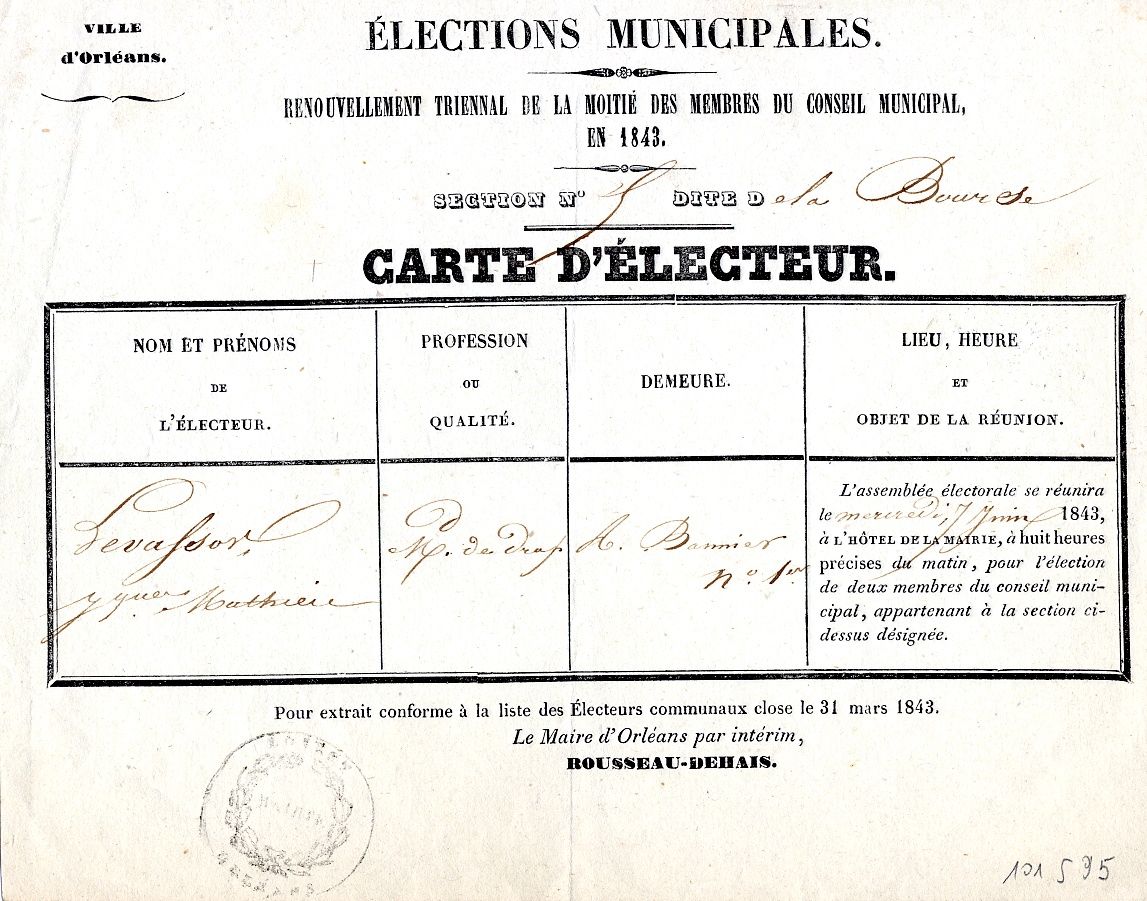 VILLE
d'Orléans.
ÉLECTIONS MUNICIPALES.
RENOUVELLEMENT TRIENNAL DE LA MOITIÉ DES MEMBRES DU CONSEIL MUNICIPAL,
EN 1843.
SECTION No 5 DITE De la Bourse
CARTE D'ÉLECTEUR.
NOM ET PRÉNOMS
DE
L'ÉLECTEUR.
PROFESSION
OU
QUALITÉ.
DEMEURE.
LIEU, HEURE
ET
OBJET DE LA RÉUNION.
Levassor,
Mathieu
M. de drap
R. Bannier
No. 1er
L'assemblée électorale se réunira
le mercredi, 7 Juin 1843,
à L'HÔTEL DE LA MAIRIE, à huit heures
précises du matin, pour l'élection
de deux membres du conseil muni-
cipal, appartenant à la section ci-
dessus désignée.
Pour extrait conforme à la liste des Électeurs communaux close le 31 mars 1843.
Le Maire d'Orléans par intérim,
ROUSSEAU-DEHAIS.
MAIRIE
101 595